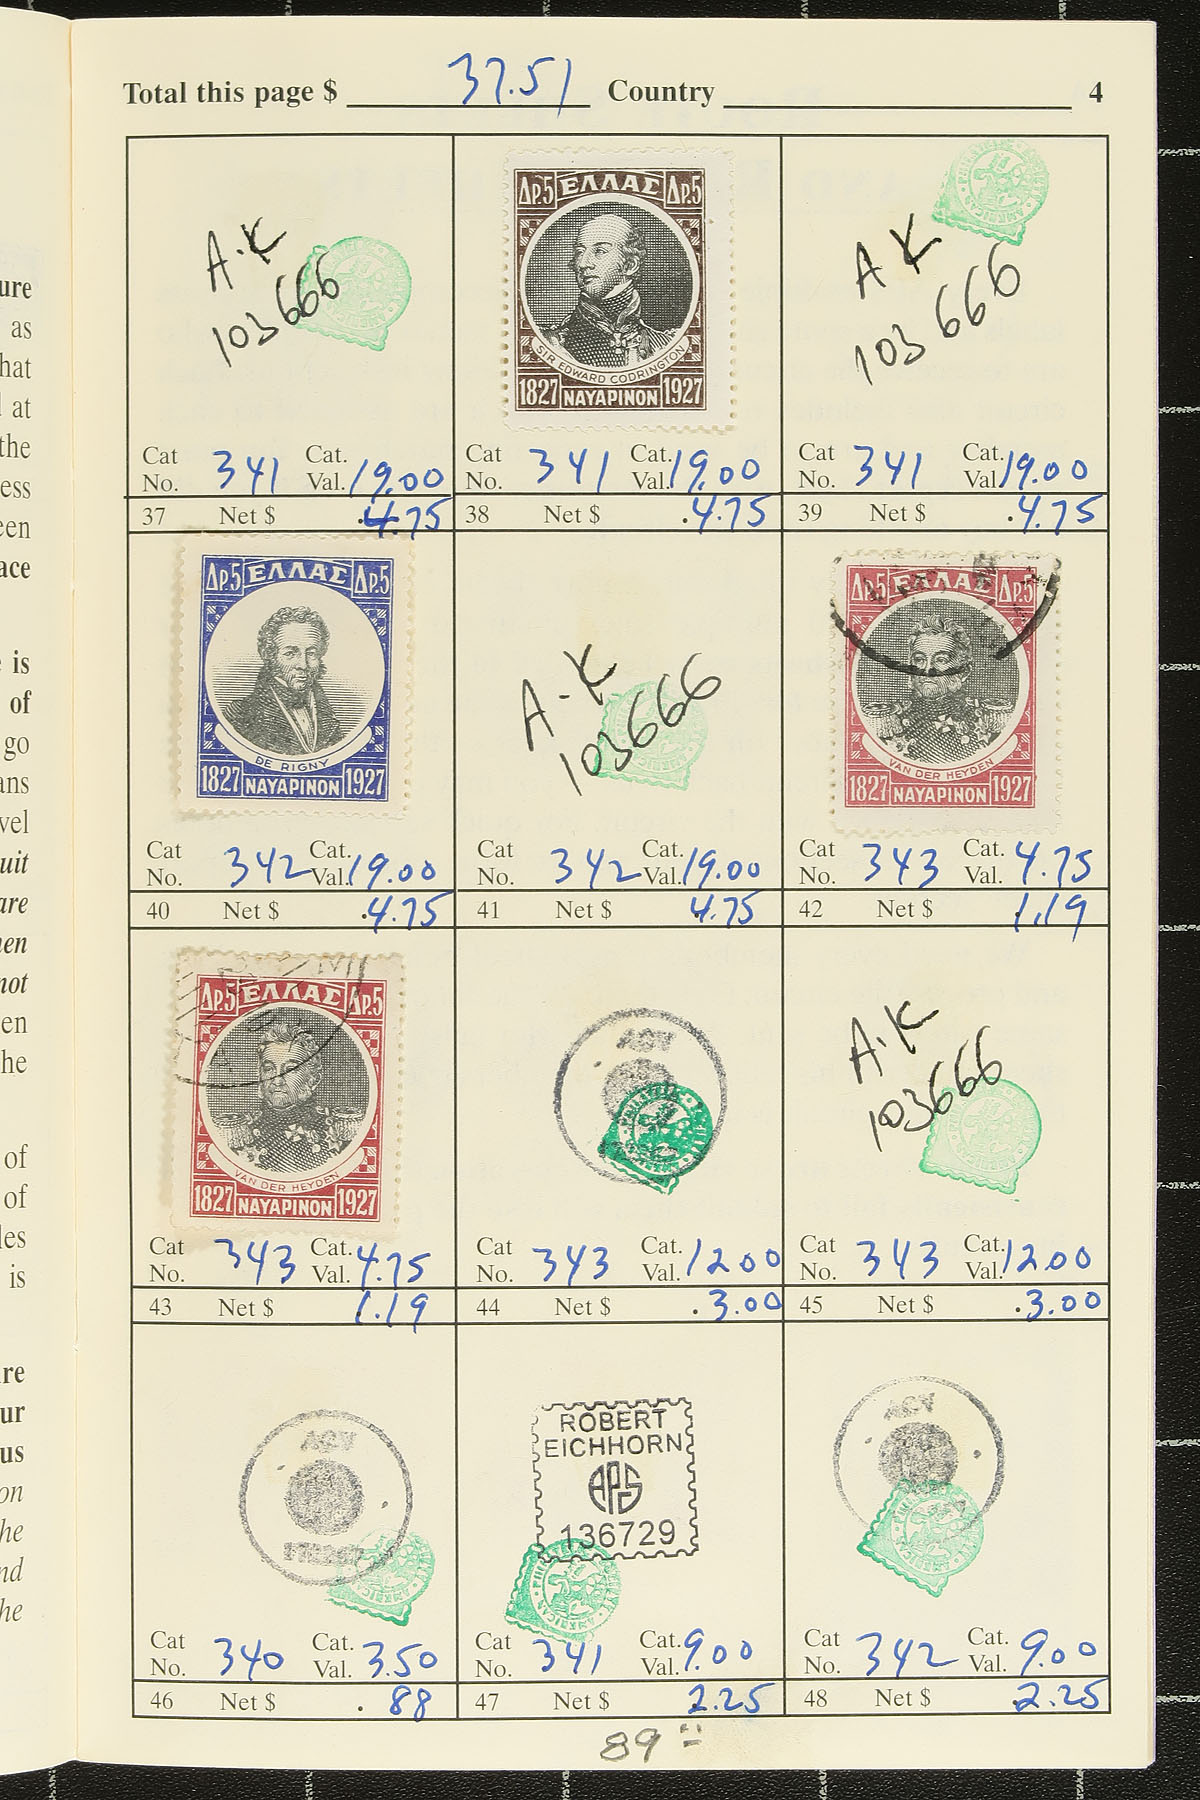 Total this page $ 37.51 Country 4
A.K
103666
Cat No. 341 Cat. Val. 19.00
37 Net $ .4.75
Δρ.5 ΕΛΛΑΣ Δρ.5
SIR EDWARD CODRINGTON
1827 ΝΑΥΑΡΙΝΟΝ 1927
Cat No. 341 Cat. Val. 19.00
38 Net $ .4.75
A K
103666
Cat No. 341 Cat. Val. 19.00
39 Net $ .4.75
Δρ.5 ΕΛΛΑΣ Δρ.5
DE RIGNY
1827 ΝΑΥΑΡΙΝΟΝ 1927
Cat No. 342 Cat. Val. 19.00
40 Net $ .4.75
A.K
103666
Cat No. 342 Cat. Val. 19.00
41 Net $ 4.75
Δρ.5 ΕΛΛΑΣ Δρ.5
VAN DER HEYDEN
1827 ΝΑΥΑΡΙΝΟΝ 1927
Cat No. 343 Cat. Val. 4.75
42 Net $ 1.19
Δρ.5 ΕΛΛΑΣ Δρ.5
VAN DER HEYDEN
1827 ΝΑΥΑΡΙΝΟΝ 1927
Cat No. 343 Cat. Val. 4.75
43 Net $ 1.19
Cat No. 343 Cat. Val. 12 00
44 Net $ .3.00
A.K
103666
Cat No. 343 Cat. Val. 12 00
45 Net $ .3.00
Cat No. 340 Cat. Val. 3.50
46 Net $ .88
ROBERT
EICHHORN
APS
136729
Cat No. 341 Cat. Val. 9.00
47 Net $ 2.25
Cat No. 342 Cat. Val. 9.00
48 Net $ 2.25
89
ure
as
hat
at
the
ess
een
ace
is
of
go
ans
vel
uit
are
hen
not
en
he
of
of
les
is
re
ur
us
on
he
nd
he